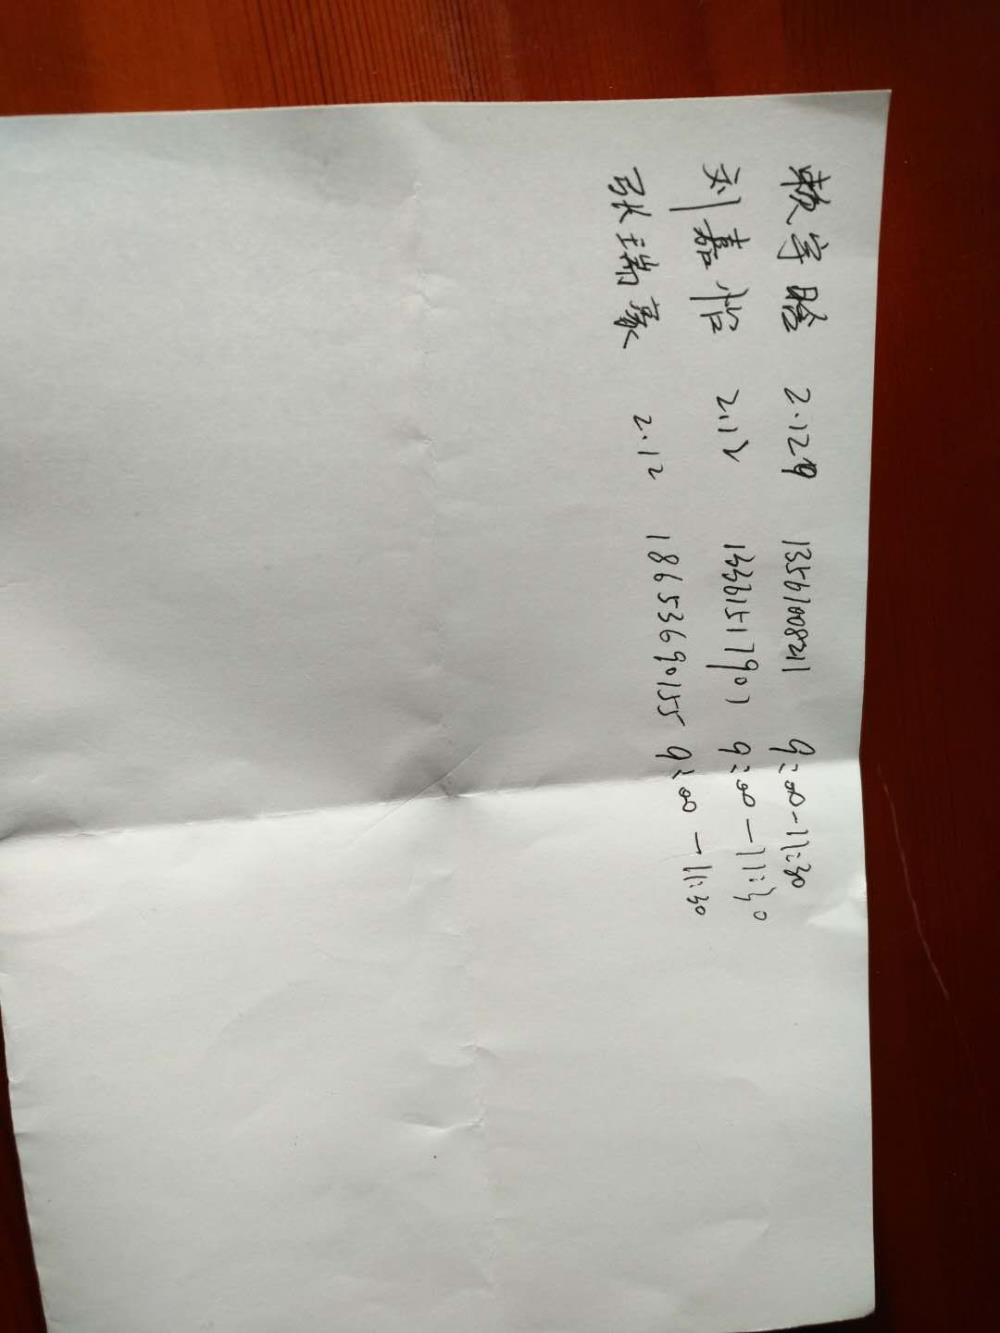 赖宇晗 2.12 13561008211 9:00-11:30
刘嘉怡 2.12 13361517907 9:00-11:30
张瑞豪 2.12 18653690155 9:00-11:30